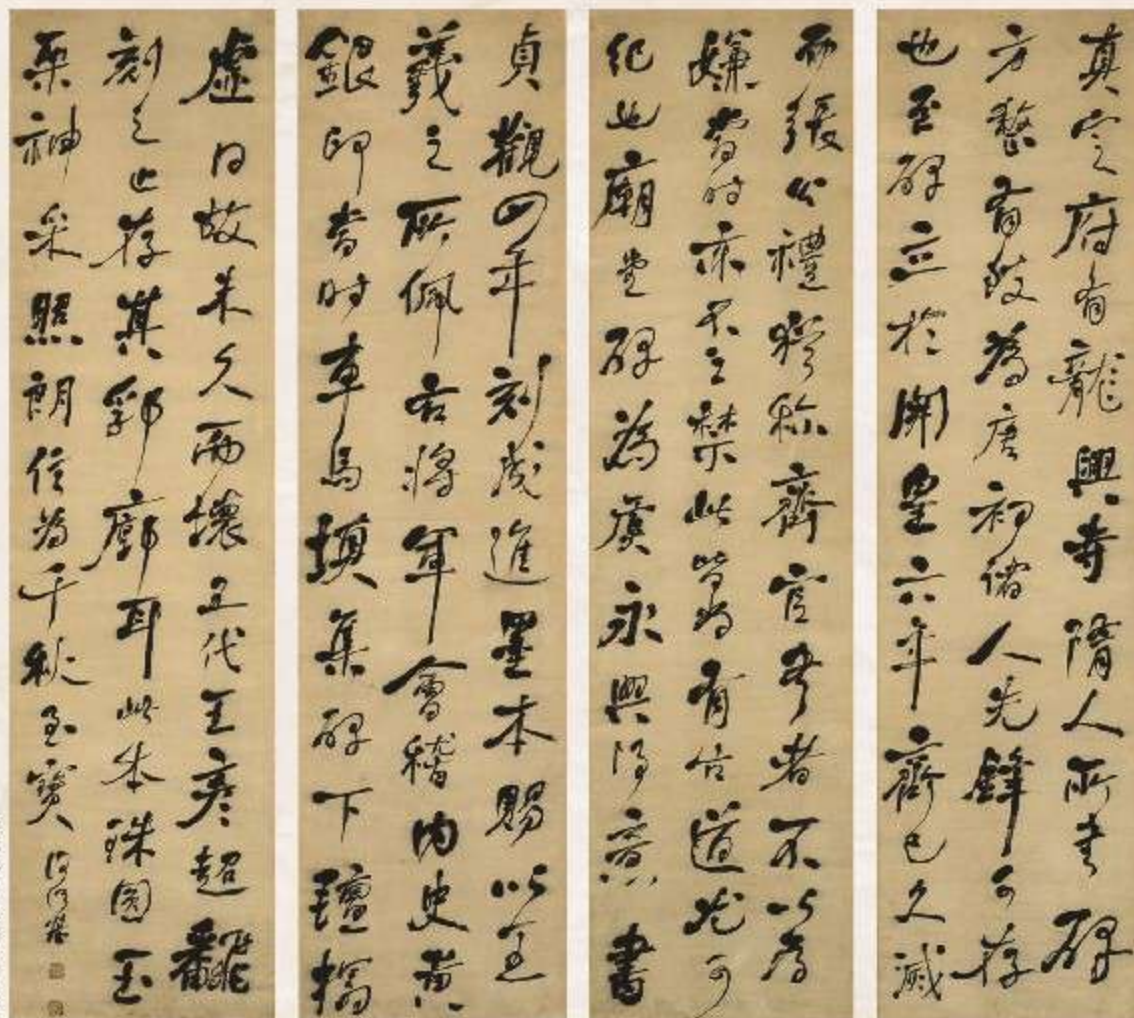 真定府有龍興寺隋人所書碑
方整有致為唐初諸人先鋒可存
也至碑立於開皇六年齊已久滅
而張公禮猶稱齊官書者不以為
嫌當時亦不之禁此皆為有古道尤可
紀也廟堂碑為虞永興得意書
貞觀四年刻成進墨本賜以王
羲之所佩右將軍會稽內史黃
銀印當時車馬填集碑下氈搨
虛日故未久而壞五代王彥超翻
刻之止存其郛廓耳此本珠圓玉
栗神采照朗信為千秋至寶